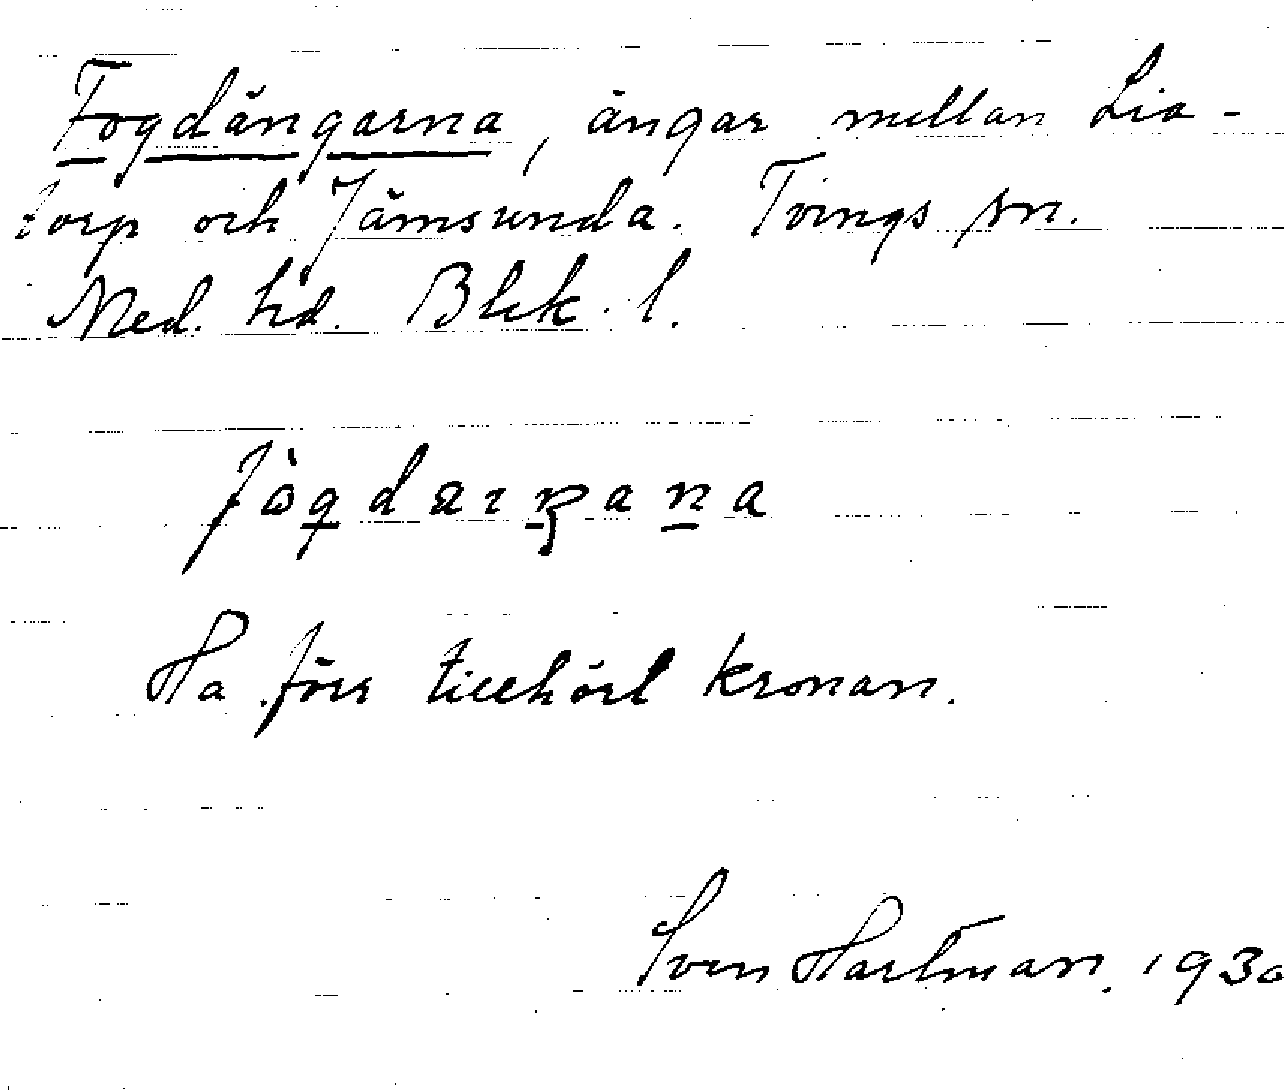 Fogdängarna, ängar mellan Lia-
torp och Jämsunda. Tvings sn.
Med. hd. Blek. l.
Ha förr tillhört kronan.
Sven Hartman. 1930